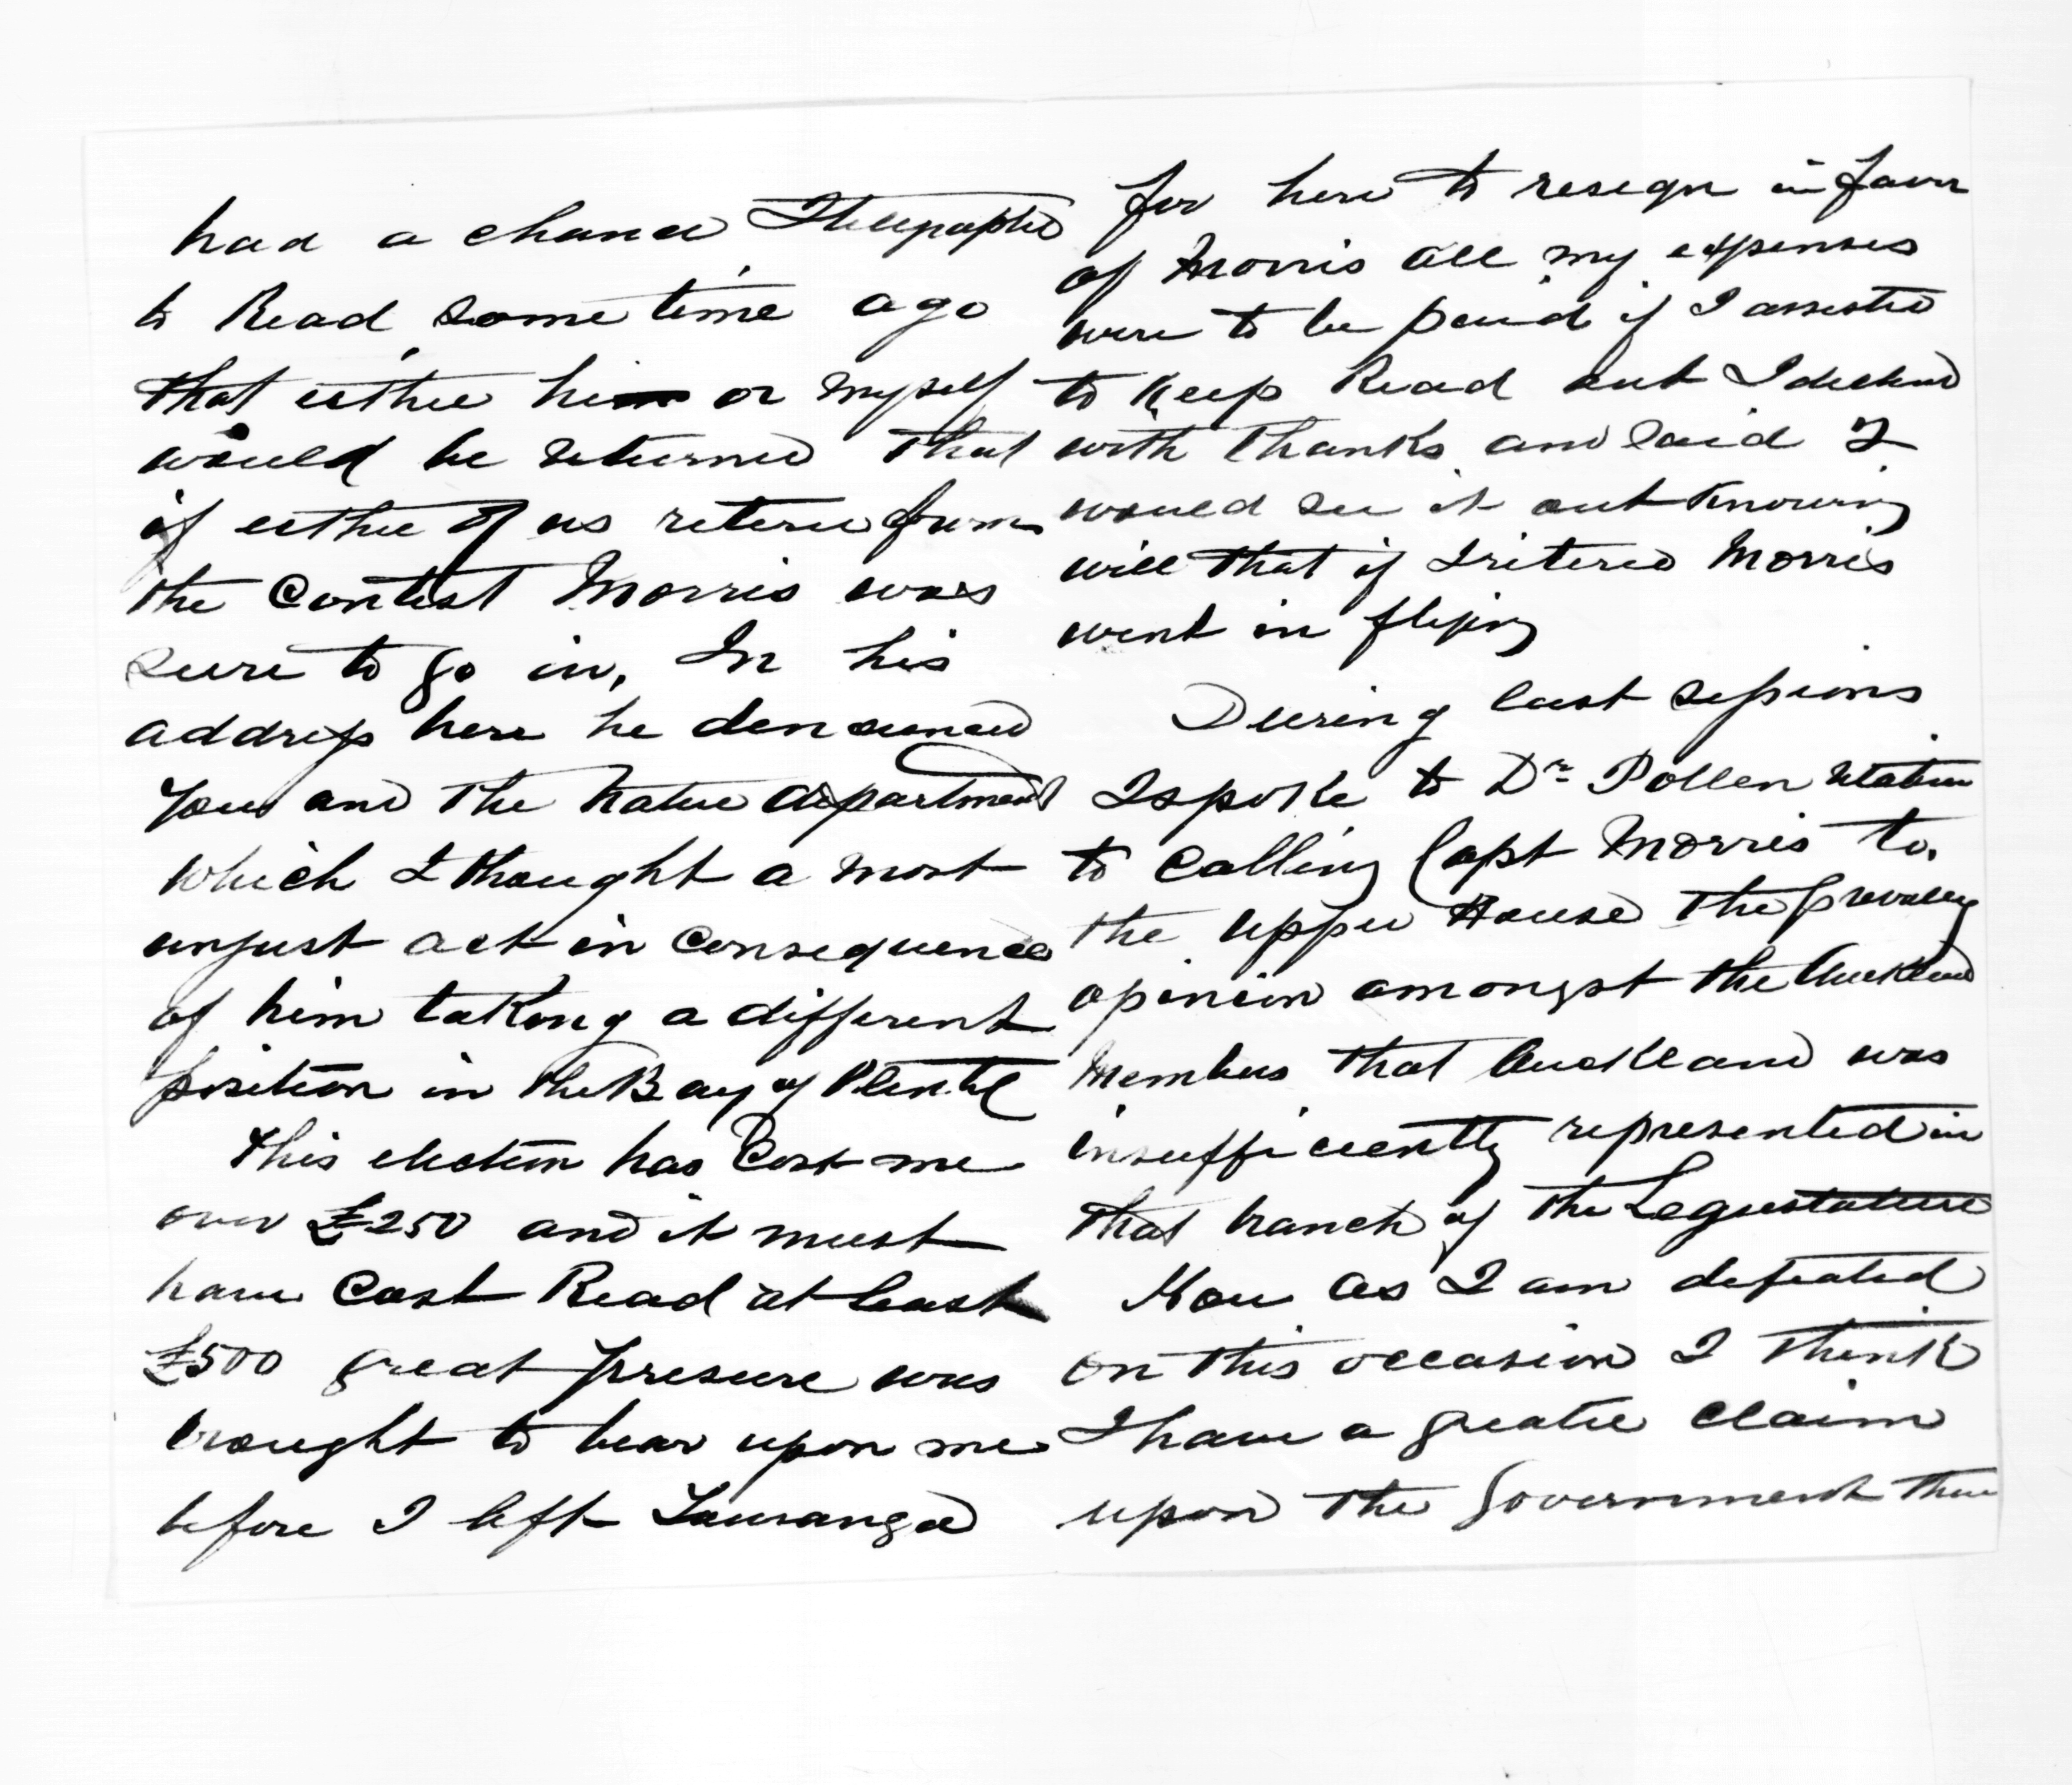 had a chance I telegraphed
to Read some time ago
that either him or myself
would be returned that
if either of us retire from
the Contest Morris was
sure to go in, In his
address here he denounced
You and the Native department
which I thought a most
unjust act in Consequence
of him taking a different
position in the Bay of Plenty
This election has Cost me
over £250 and it must
have Cost Read at least
£500 great presure was
brought to bear upon me
before I left Tauranga
for here to resign in favor
of Morris all my expenses
were to be paid if I assisted
to keep Read out I declined
with thanks and said I
would see it out knowing
well that if I retired Morris
went in flying
During last sessions
I spoke to Dr Pollen relative
to Calling Capt Morris to
the upper House the prevailing
opinion amongst the Auckland
Members that Auckland was
insufficiently represented in
that branch of the Legislature
Now as I am defeated
on this occasion I think
I have a greater Claim
upon the Government than